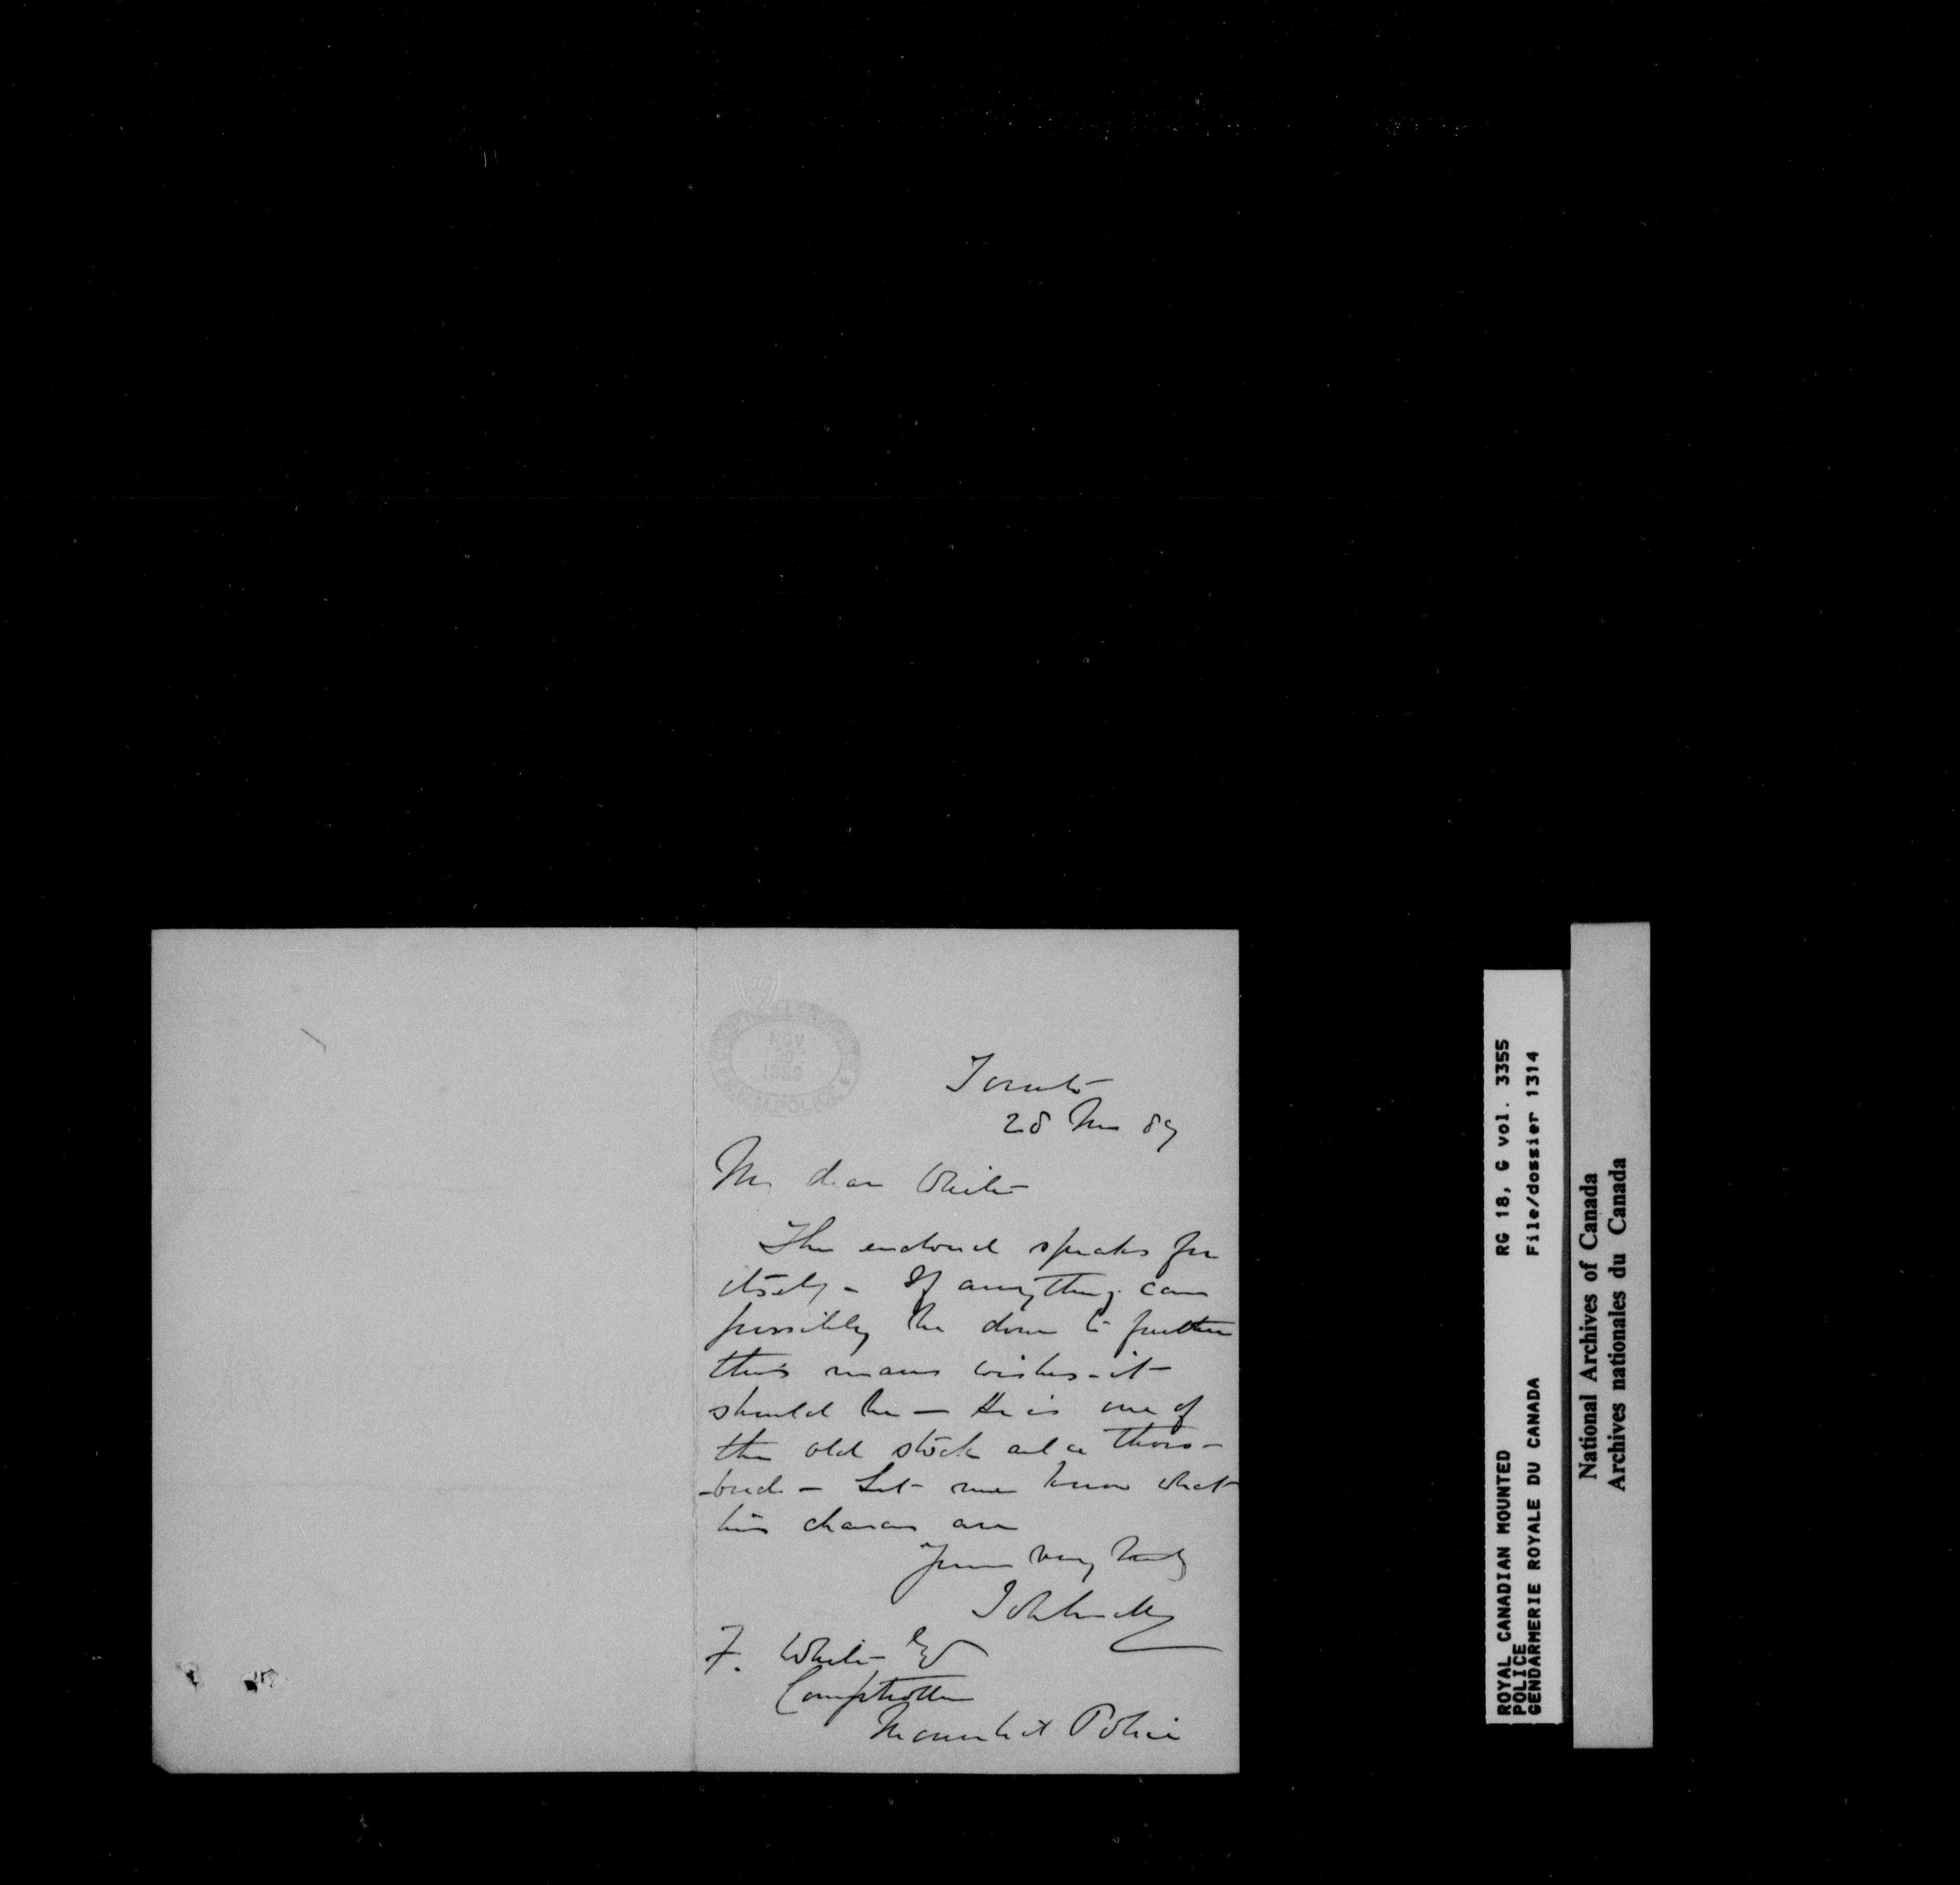 NOV
30
1889
Toronto
28 Nov 89
My dear White
The enclosed speaks for
itself - If anything can
possibly be done to further
this mans wishes - it
should be - He is one of
the old stock and a thoro-
-bred - Let me know what
his chances are
Yours very truly
F. White Esq
Comptroller
Mounted Police
ROYAL CANADIAN MOUNTED RG 18, G vol. 3355
POLICE File/dossier 1314
GENDARMERIE ROYALE DU CANADA
National Archives of Canada
Archives nationales du Canada